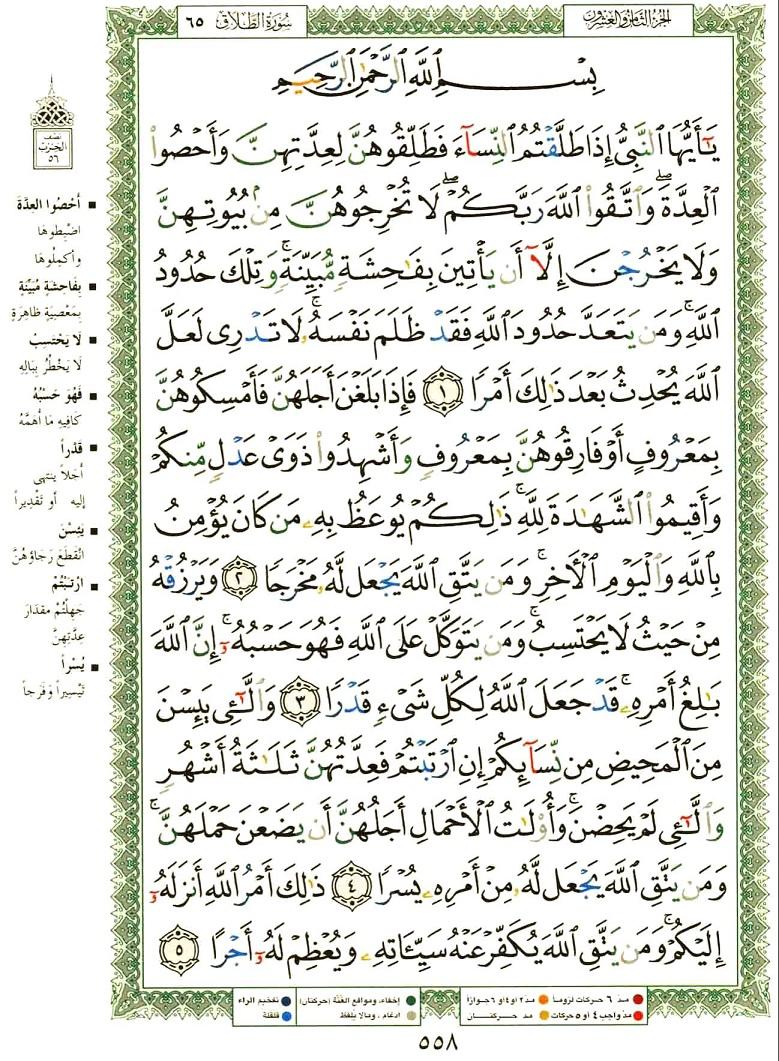 سُورَةُ الطَّلَاق ٦٥
الجُزءُ الثَّامِنُ وَالعِشرُون
بِسْمِ ٱللَّهِ ٱلرَّحْمَٰنِ ٱلرَّحِيمِ
يَٰٓأَيُّهَا ٱلنَّبِىُّ إِذَا طَلَّقْتُمُ ٱلنِّسَآءَ فَطَلِّقُوهُنَّ لِعِدَّتِهِنَّ وَأَحْصُوا۟
ٱلْعِدَّةَ ۖ وَٱتَّقُوا۟ ٱللَّهَ رَبَّكُمْ ۖ لَا تُخْرِجُوهُنَّ مِنۢ بُيُوتِهِنَّ
وَلَا يَخْرُجْنَ إِلَّآ أَن يَأْتِينَ بِفَٰحِشَةٍ مُّبَيِّنَةٍ ۚ وَتِلْكَ حُدُودُ
ٱللَّهِ ۚ وَمَن يَتَعَدَّ حُدُودَ ٱللَّهِ فَقَدْ ظَلَمَ نَفْسَهُۥ ۚ لَا تَدْرِى لَعَلَّ
ٱللَّهَ يُحْدِثُ بَعْدَ ذَٰلِكَ أَمْرًا ١ فَإِذَا بَلَغْنَ أَجَلَهُنَّ فَأَمْسِكُوهُنَّ
بِمَعْرُوفٍ أَوْ فَارِقُوهُنَّ بِمَعْرُوفٍ وَأَشْهِدُوا۟ ذَوَىْ عَدْلٍ مِّنكُمْ
وَأَقِيمُوا۟ ٱلشَّهَٰدَةَ لِلَّهِ ۚ ذَٰلِكُمْ يُوعَظُ بِهِۦ مَن كَانَ يُؤْمِنُ
بِٱللَّهِ وَٱلْيَوْمِ ٱلْءَاخِرِ ۚ وَمَن يَتَّقِ ٱللَّهَ يَجْعَل لَّهُۥ مَخْرَجًا ٢ وَيَرْزُقْهُ
مِنْ حَيْثُ لَا يَحْتَسِبُ ۚ وَمَن يَتَوَكَّلْ عَلَى ٱللَّهِ فَهُوَ حَسْبُهُۥٓ ۚ إِنَّ ٱللَّهَ
بَٰلِغُ أَمْرِهِۦ ۚ قَدْ جَعَلَ ٱللَّهُ لِكُلِّ شَىْءٍ قَدْرًا ٣ وَٱلَّٰٓـِٔى يَئِسْنَ
مِنَ ٱلْمَحِيضِ مِن نِّسَآئِكُمْ إِنِ ٱرْتَبْتُمْ فَعِدَّتُهُنَّ ثَلَٰثَةُ أَشْهُرٍ
وَٱلَّٰٓـِٔى لَمْ يَحِضْنَ ۚ وَأُو۟لَٰتُ ٱلْأَحْمَالِ أَجَلُهُنَّ أَن يَضَعْنَ حَمْلَهُنَّ ۚ
وَمَن يَتَّقِ ٱللَّهَ يَجْعَل لَّهُۥ مِنْ أَمْرِهِۦ يُسْرًا ٤ ذَٰلِكَ أَمْرُ ٱللَّهِ أَنزَلَهُۥٓ
إِلَيْكُمْ ۚ وَمَن يَتَّقِ ٱللَّهَ يُكَفِّرْ عَنْهُ سَيِّـَٔاتِهِۦ وَيُعْظِمْ لَهُۥٓ أَجْرًا ٥
نصف
الحزب
٥٦
■ أَحْصُوا العِدَّةَ
اضْبِطوهَا
وأكمِلُوهَا
■ بِفاحشةٍ مُبَيِّنَةٍ
بِمَعْصِيَةٍ ظاهِرَةٍ
■ لَا يَحْتَسِبُ
لَا يَخْطُرُ بِبَالِهِ
■ فَهُوَ حَسْبُهُ
كَافِيهِ مَا أَهَمَّهُ
■ قَدْراً
أَجَلاً ينتهي
إليه أو تَقْدِيراً
■ يَئِسْنَ
انْقَطَعَ رَجَاؤُهُنَّ
■ ارْتَبْتُمْ
جَهِلْتُمْ مِقدَارَ
عِدَّتِهِنَّ
■ يُسْراً
تَيْسِيراً وَفَرَجاً
مدّ ٦ حركات لزوماً
مدّ ٢ أو ٤ أو ٦ جوازاً
مدّ واجب ٤ أو ٥ حركات
مدّ حركتان
إخفاء، ومواقع الغُنَّة (حركتان)
ادغام، ومالا يُلفظ
تفخيم الراء
قلقلة
٥٥٨